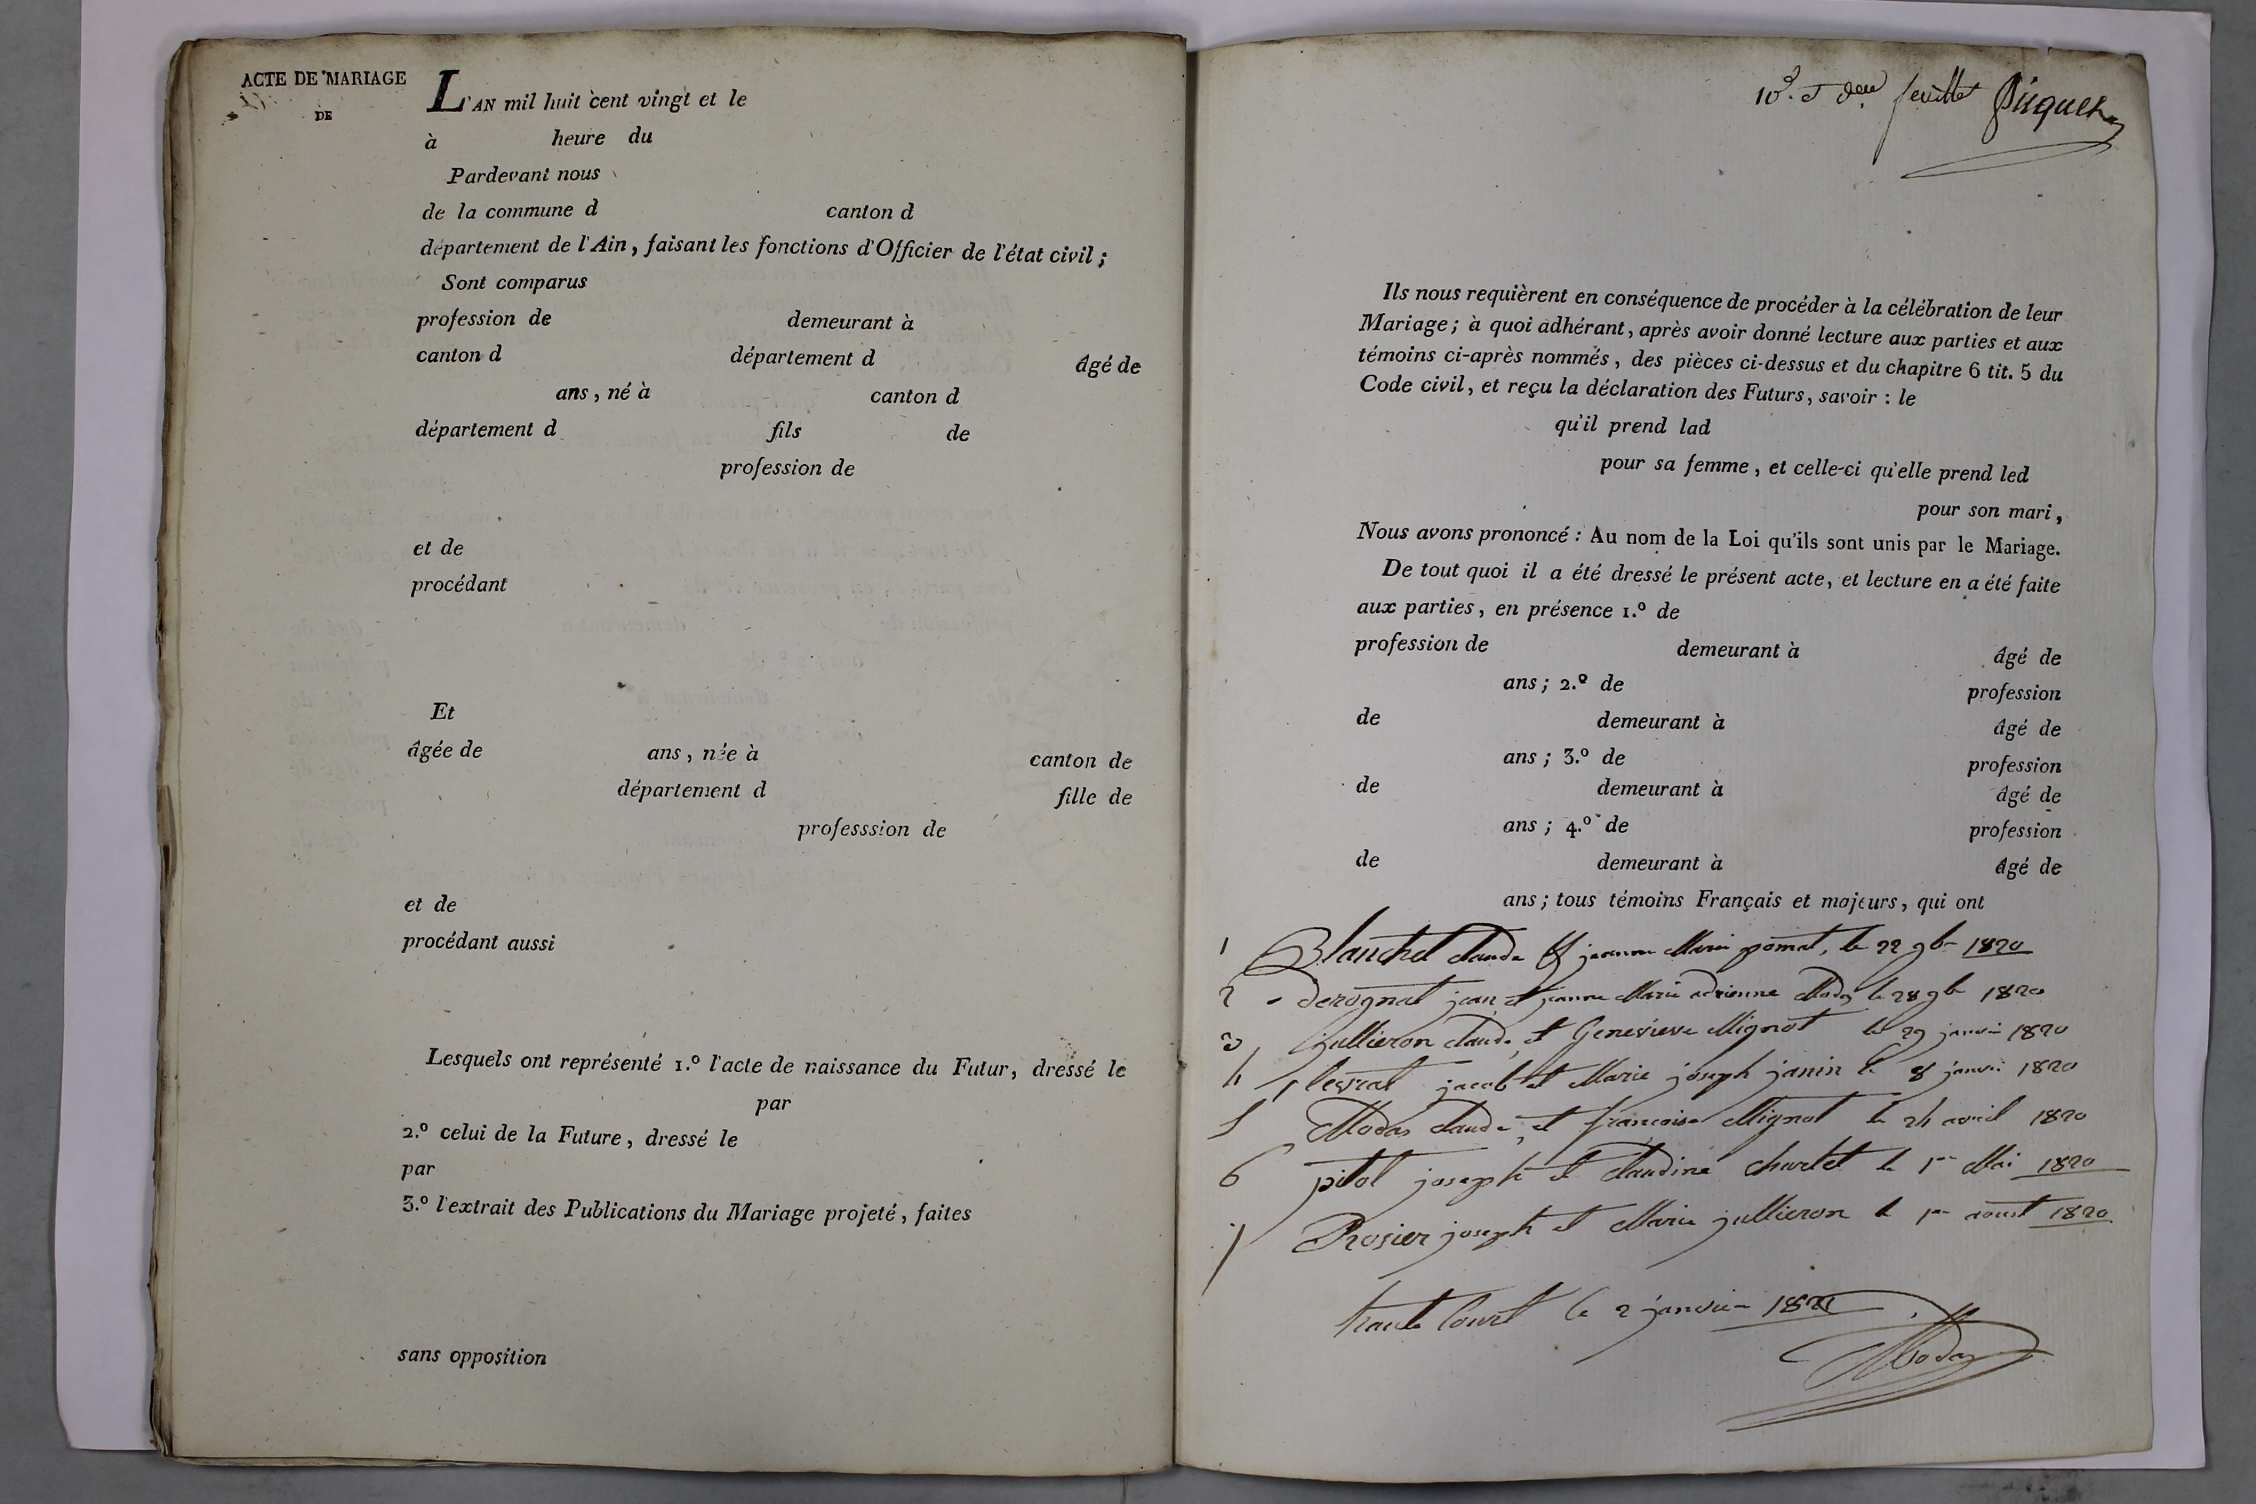 ACTE DE MARIAGE
DE
L'AN mil huit cent vingt et le
à heure du
Pardevant nous
de la commune d canton d
département de l'Ain, faisant les fonctions d'Officier de l'état civil;
Sont comparus
profession de demeurant à
canton d département d âgé de
ans, né à canton d
département d fils de
profession de
et de
procédant
Et
âgée de ans, née à canton de
département d fille de
professsion de
et de
procédant aussi
Lesquels ont représenté 1.º l'acte de naissance du Futur, dressé le
par
2.º celui de la Future, dressé le
par
3.º l'extrait des Publications du Mariage projeté, faites
sans opposition
10 et feuillet
Ils nous requièrent en conséquence de procéder à la célébration de leur
Mariage; à quoi adhérant, après avoir donné lecture aux parties et aux
témoins ci-après nommés, des pièces ci-dessus et du chapitre 6 tit. 5 du
Code civil, et reçu la déclaration des Futurs, savoir: le
qu'il prend lad
pour sa femme, et celle-ci qu'elle prend led
pour son mari,
Nous avons prononcé: Au nom de la Loi qu'ils sont unis par le Mariage.
De tout quoi il a été dressé le présent acte, et lecture en a été faite
aux parties, en présence 1.º de
profession de demeurant à âgé de
ans; 2.º de profession
de demeurant à âgé de
ans; 3.º de profession
de demeurant à âgé de
ans; 4.º de profession
de demeurant à âgé de
ans; tous témoins Français et majeurs, qui ont
1 Blanchet claude et jeanne Marie pomat, le 22 9b 1820
2 derognat jean et jeanne Marie adrienne Modas le 28 9b 1820
3 jullieron claude et Genevieve Mignot le 29 janvier 1820
4 jacob et Marie joseph janin le 8 janvi 1820
5 Modas claude et francoise Mignot le 24 avril 1820
6 pitol joseph et claudine charlet le 1er Mai 1820
7 Rosier joseph et Marie jullieron le 1er aoust 1820
haute Court le 2 janvier 1821
Modas